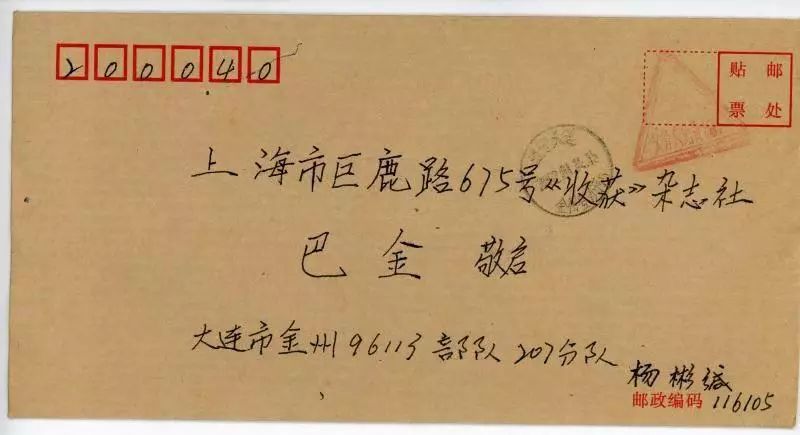 200040
贴邮
票处
上海市巨鹿路675号《收获》杂志社
巴金 敬启
大连市金州96113部队207分队
杨彬缄
邮政编码 116105